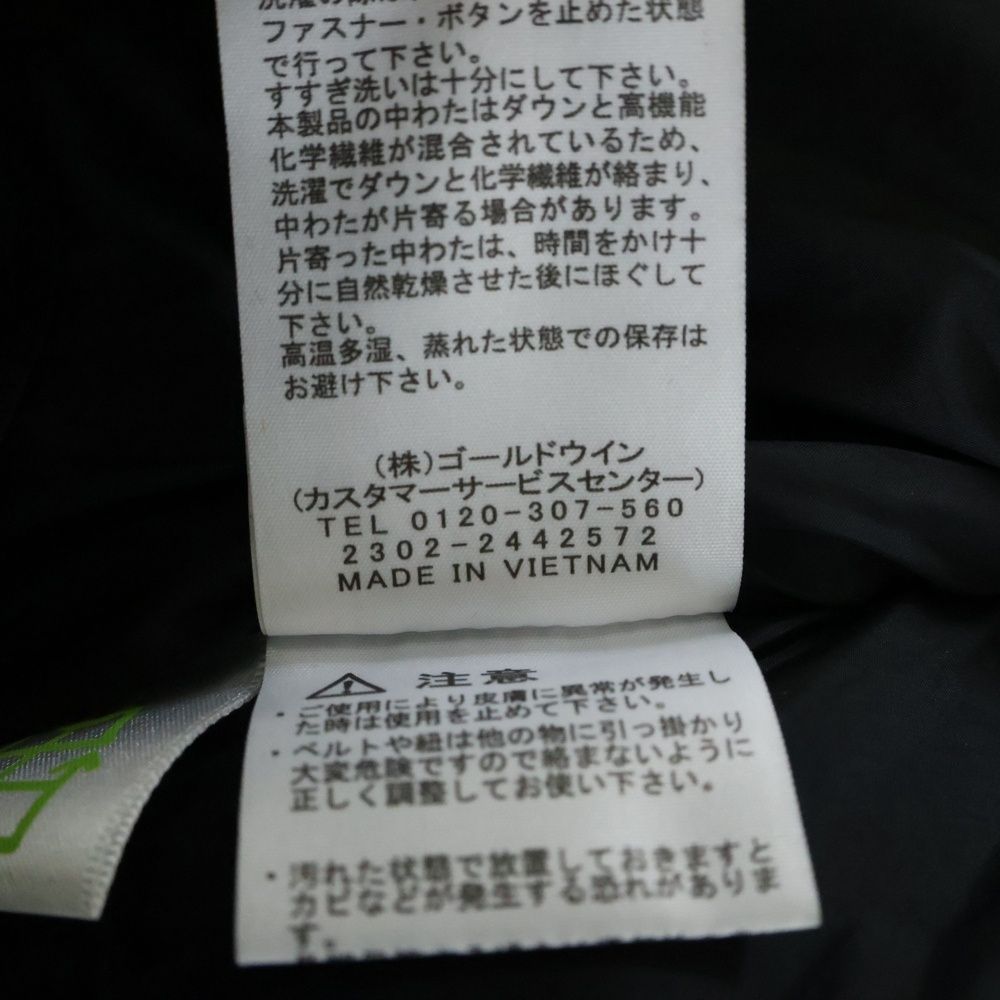 洗濯の際は
ファスナー・ボタンを止めた状態
で行って下さい。
すすぎ洗いは十分にして下さい。
本製品の中わたはダウンと高機能
化学繊維が混合されているため、
洗濯でダウンと化学繊維が絡まり、
中わたが片寄る場合があります。
片寄った中わたは、時間をかけ十
分に自然乾燥させた後にほぐして
下さい。
高温多湿、蒸れた状態での保存は
お避け下さい。
(株)ゴールドウイン
(カスタマーサービスセンター)
TEL 0120-307-560
2302-2442572
MADE IN VIETNAM
注意
・ご使用により皮膚に異常が発生し
た時は使用を止めて下さい。
・ベルトや紐は他の物に引っ掛かり
大変危険ですので絡まないように
正しく調整してお使い下さい。
・汚れた状態で放置しておきますと
カビなどが発生する恐れがありま
す。